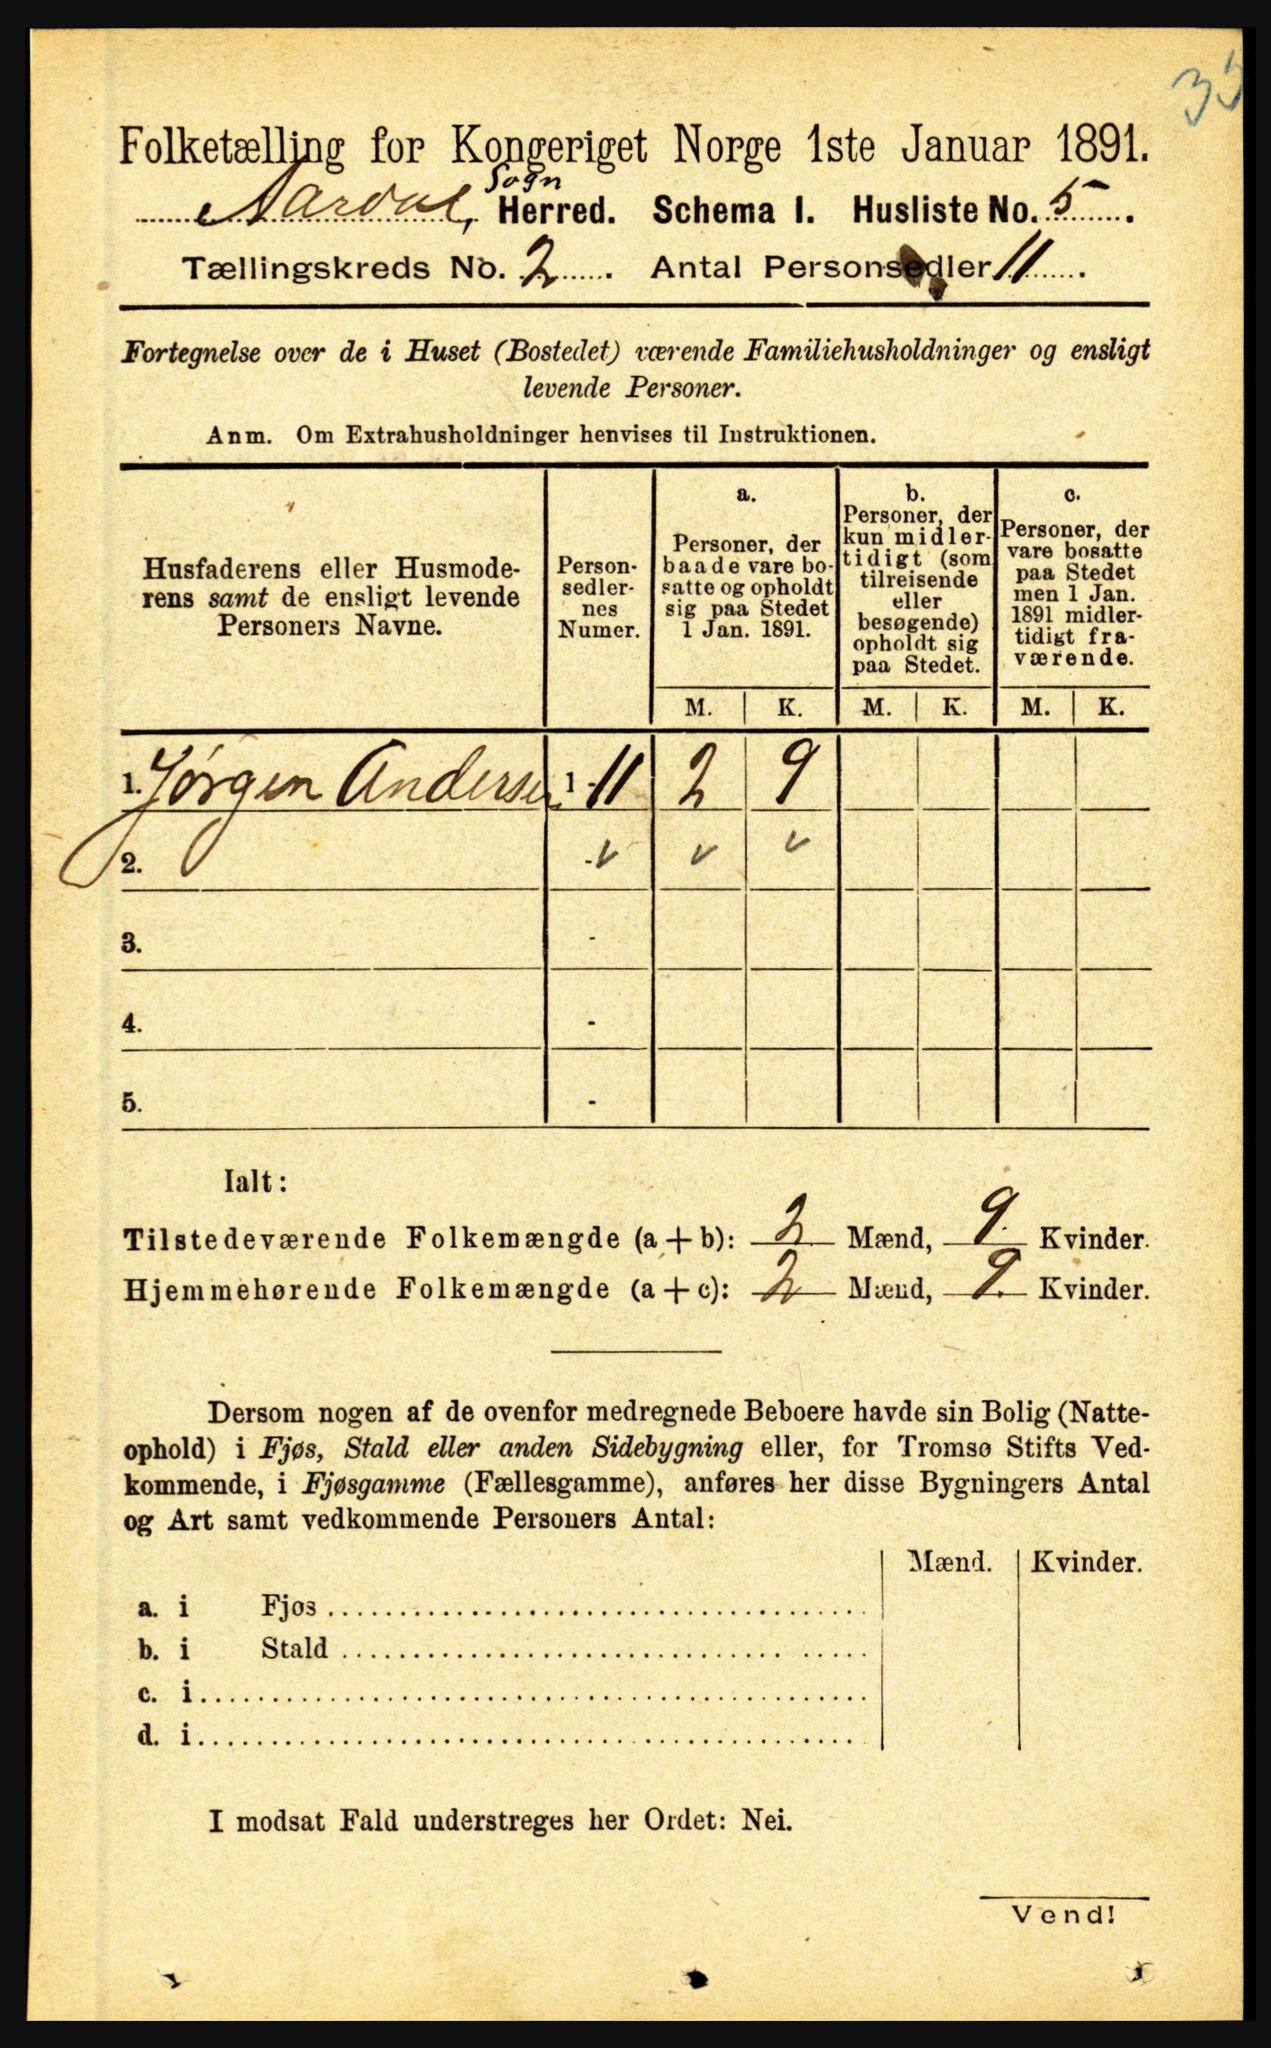 35
Folketælling for Kongeriget Norge 1ste Januar 1891.
Sogn
Aardal, Herred. Schema I. Husliste No. 5.
Tællingskreds No. 2. Antal Personsedler 11.
Fortegnelse over de i Huset (Bostedet) værende Familiehusholdninger og ensligt
levende Personer.
Anm. Om Extrahusholdninger henvises til Instruktionen.
Husfaderens eller Husmode-
rens samt de ensligt levende
Personers Navne.
Person-
sedler-
nes
Numer.
a.
Personer, der
baade vare bo-
satte og opholdt
sig paa Stedet
1 Jan. 1891.
b.
Personer, der
kun midler-
tidigt (som
tilreisende
eller
besøgende)
opholdt sig
paa Stedet.
c.
Personer, der
vare bosatte
paa Stedet
men 1 Jan.
1891 midler-
tidigt fra-
værende.
M. K. M. K. M. K.
1. Jørgen Andersen 1 - 11 2 9
2. -
3. -
4. -
5. -
Ialt:
Tilstedeværende Folkemængde (a + b): 2 Mænd, 9. Kvinder.
Hjemmehørende Folkemængde (a + c): 2 Mænd, 9. Kvinder.
Dersom nogen af de ovenfor medregnede Beboere havde sin Bolig (Natte-
ophold) i Fjøs, Stald eller anden Sidebygning eller, for Tromsø Stifts Ved-
kommende, i Fjøsgamme (Fællesgamme), anføres her disse Bygningers Antal
og Art samt vedkommende Personers Antal:
Mænd. Kvinder.
a. i Fjøs
b. i Stald
c. i
d. i
I modsat Fald understreges her Ordet: Nei.
Vend!